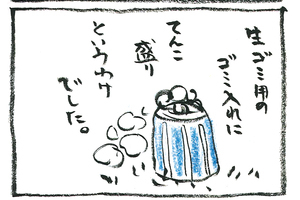 生ゴミ用の
ゴミ入れに
てんこ
盛り
というわけ
でした。